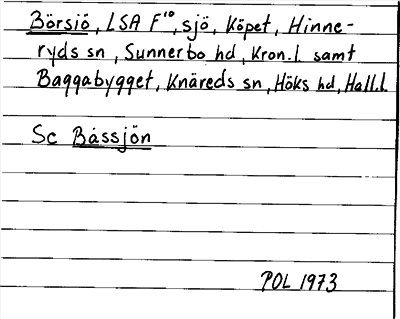 Börsjö, LSA F¹⁰, sjö, Köpet, Hinne-
ryds sn, Sunnerbo hd, Kron.l. samt
Baggabygget, Knäreds sn, Höks hd, Hall.l.
Sc Båssjön
POL 1973